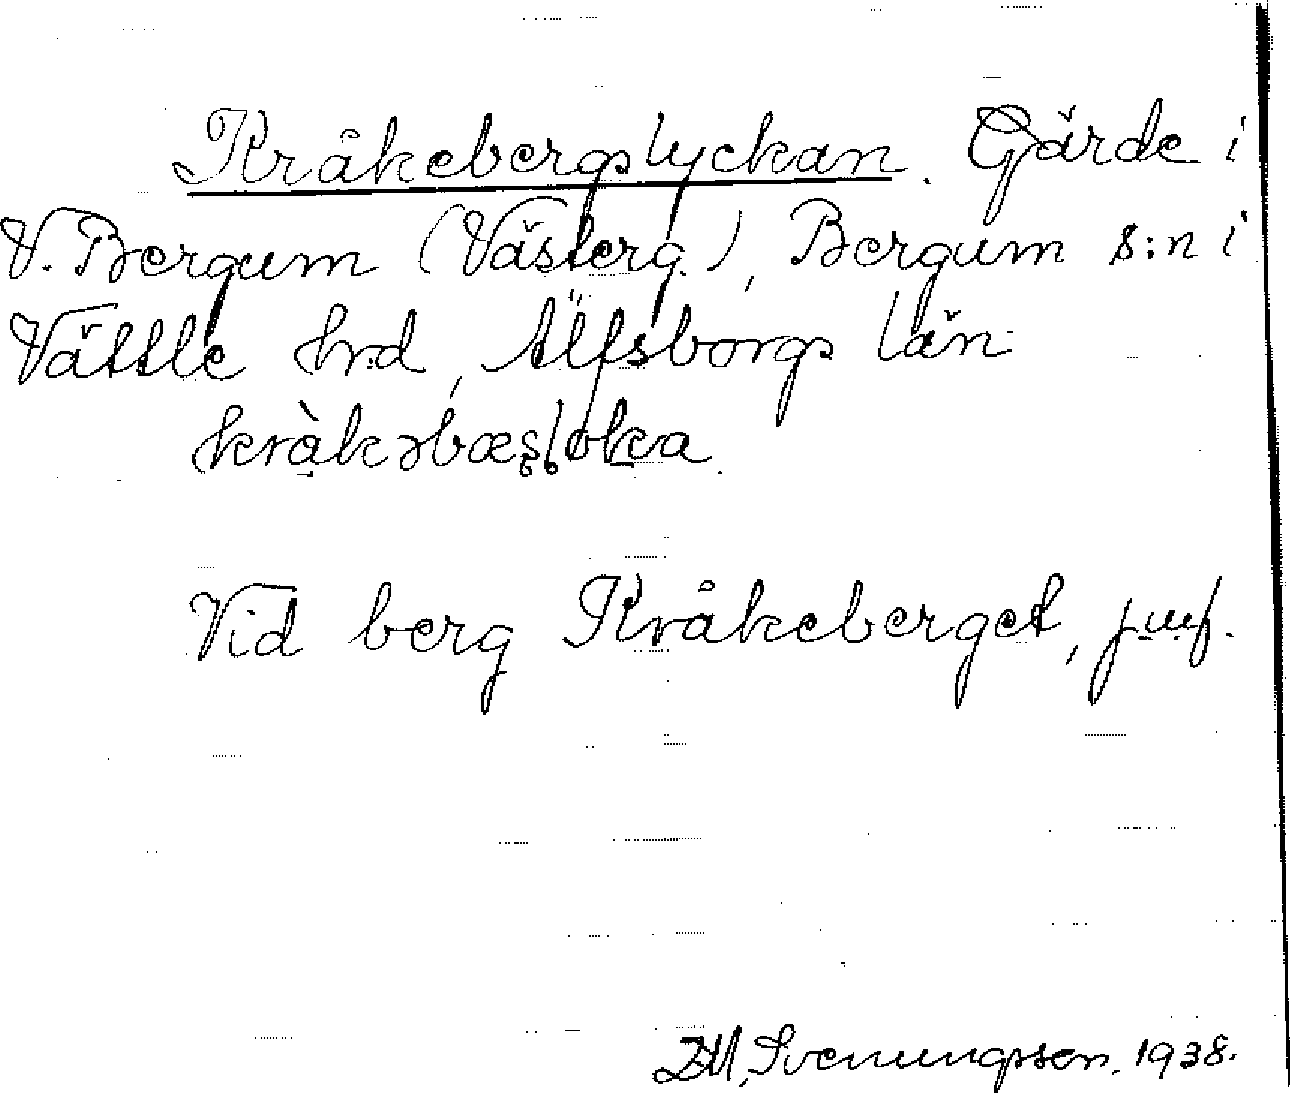 Kråkebergslyckan. Gärde i
V. Bergum (Västerg.), Bergum s:n i
Vättle hrd, Älfsborgs län
kràkəbæșḷøka
Vid berg Kråkeberget, jmf.
Svenungsson. 1938.